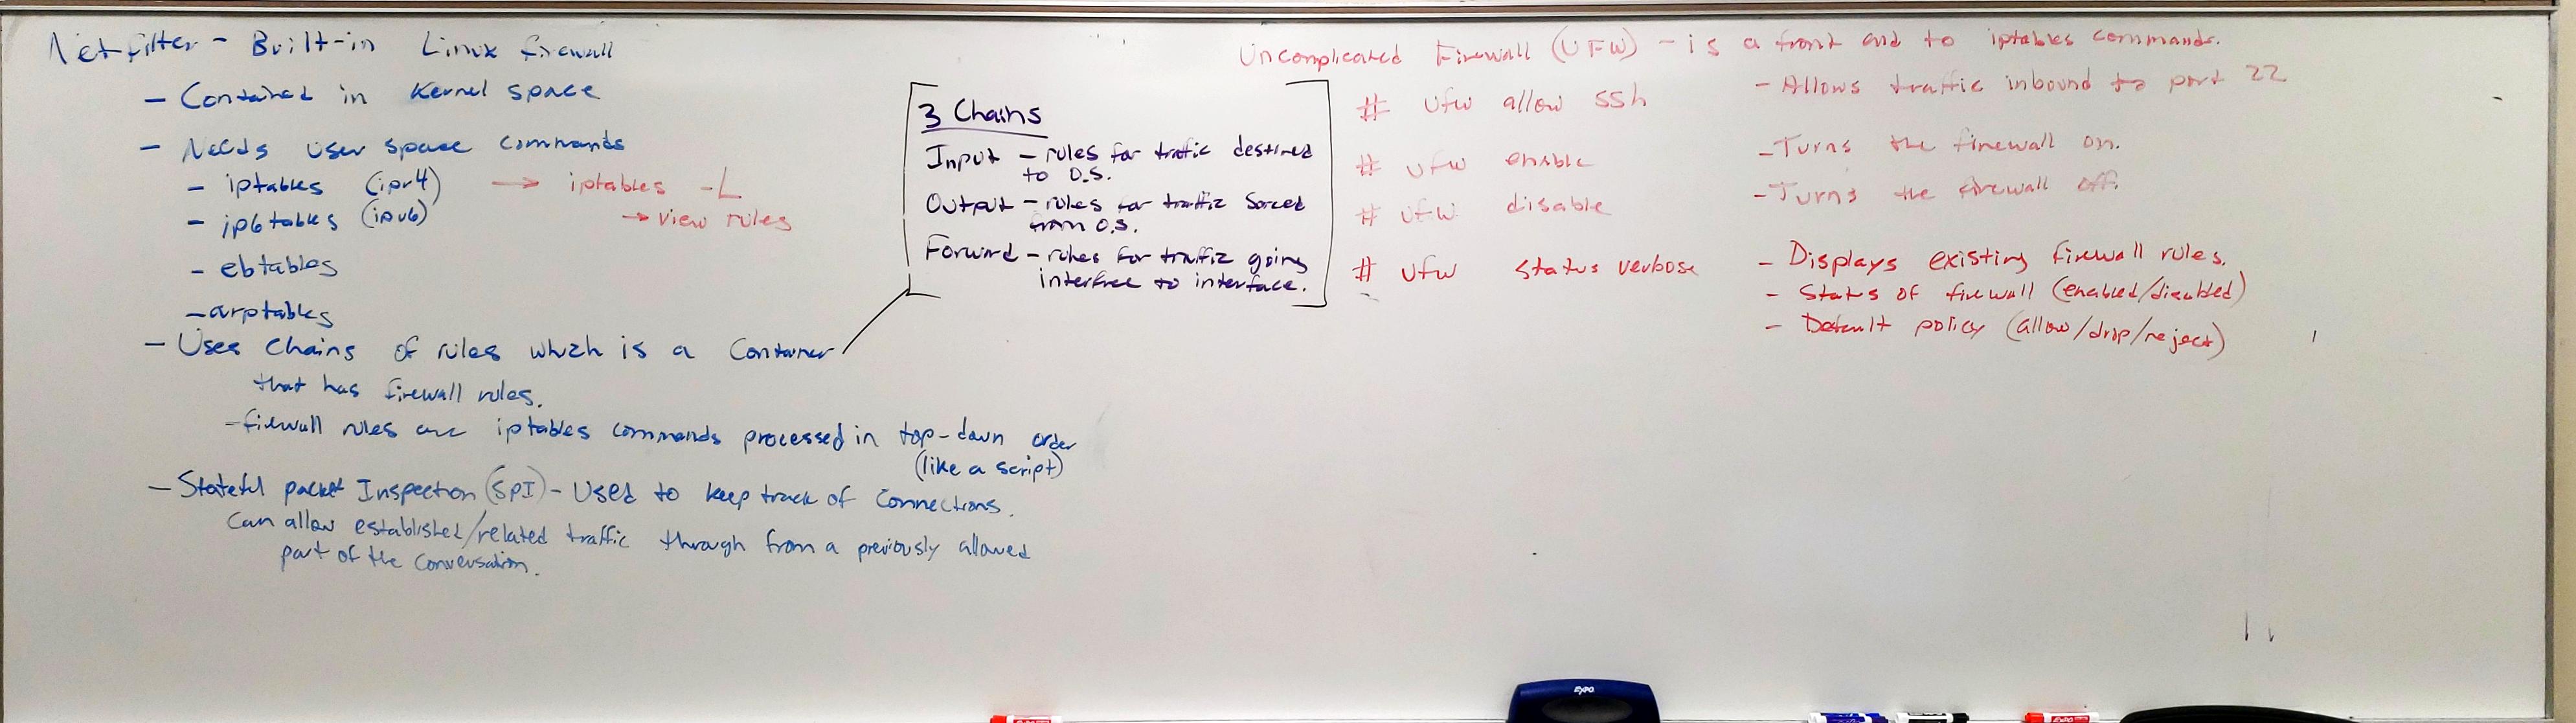 Netfilter - Built-in Linux firewall
- Contained in Kernel space
- Needs user space commands
- iptables (ipv4) → iptables -L
- ip6tables (ipv6) → view rules
- ebtables
- arptables
- Uses Chains of rules which is a Container
that has firewall rules.
- firewall rules are iptables commands processed in top-down order
(like a script)
- Stateful packet Inspection (SPI) - Used to keep track of Connections.
Can allow established/related traffic through from a previously allowed
part of the conversation.
3 Chains
Input - rules for traffic destined
to O.S.
Output - rules for traffic Sorced
from O.S.
Forward - rules for traffic going
interface to interface.
Uncomplicated Firewall (UFW) - is a front end to iptables commands.
# ufw allow ssh - Allows traffic inbound to port 22
# ufw enable - Turns the firewall on.
# ufw disable - Turns the firewall off.
# ufw status verbose - Displays existing firewall rules.
- Status of firewall (enabled/disabled)
- Default policy (allow/drop/reject)
EXPO
EXPO